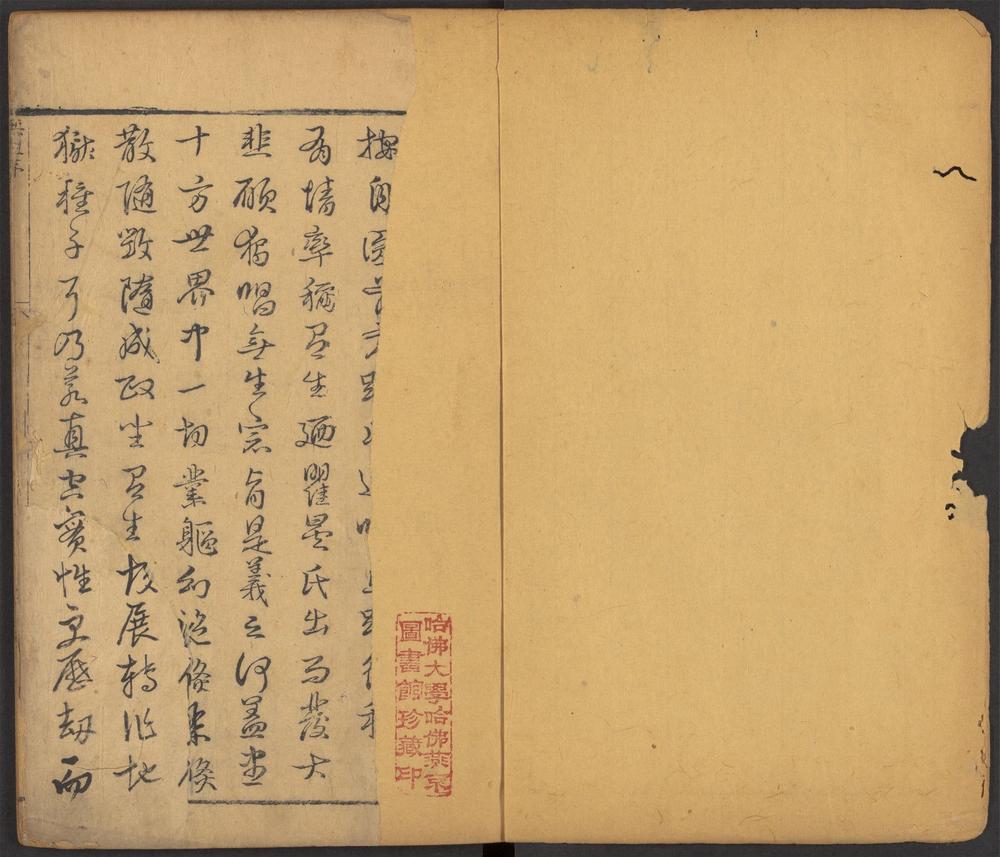 自
有情率稱有生廼瞿曇氏出而發大
悲願獨唱無生宗旨是義云何蓋盡
十方世界中一切業軀幻泡倏聚倏
散隨毀隨成政坐有生故展轉作地
獄種子耳乃若真空實性更歷劫而
哈佛大學哈佛燕京
圖書館珍藏印